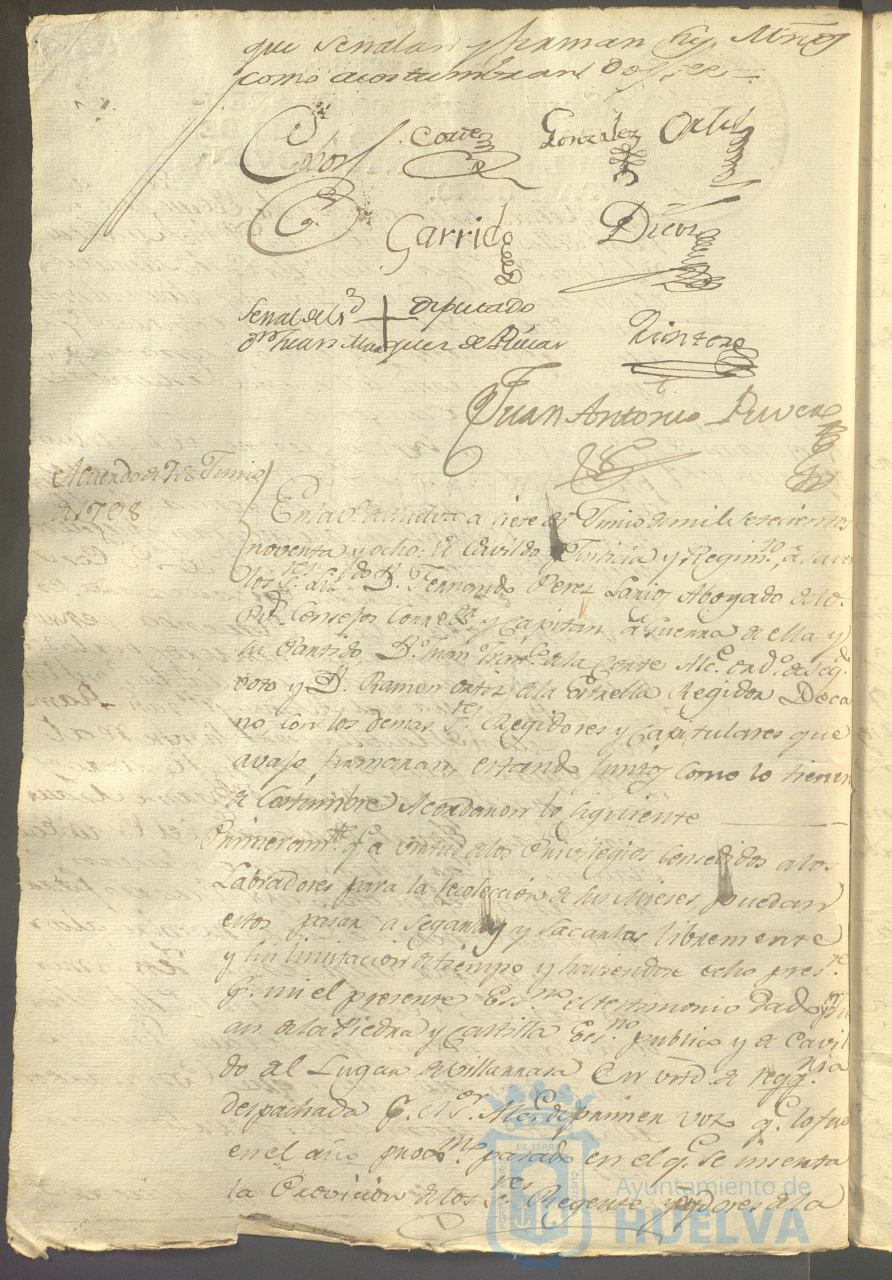 que señalan y firman
como acostumbran doy fee =
Cortez Gonzalez Ortiz
Garrido
Señal del Sr + Diputado
Dn Juan Marquez de
Quintero
Juan Antonio Rivera
Acuerdo de 7 de Junio
de 1798
En la Va. de Huelva a siete de Junio de mil setecientos
noventa y ocho: el Cavildo Justicia y Regimto. a saver
los Sres. Lizdo. Dn. Fernando Perez Abogado de los
Rs. Consejos Corregor. y Capitan a Guerra de ella y
su Partido, Dn. Juan de la Corte Alce. ordo. de segdo.
voto y Dn. Ramon Ortiz de la Estrella Regidor Deca
no con los demas Sres. Regidores y Capitulares que
avajo firmaran, estando juntos como lo tienen
de Costumbre Acordaron lo siguiente
Primeramte. qe. a virtud de los Privilegios consedidos a los
Labradores para la recoleccion de sus Mieses puedan
estos pasar a segarlas y sacarlas libremente
y sin limitacion de tiempo y haviendose echo preste.
pr. mi el presente Essno. el testimonio dado pr. Ju
an de la Piedra y Castilla Essno. publico y de Cavil
do del Lugar de Villarrasa en virtd. de reqqria
despachada pr. el Sr. Alce. de primer voto qe. lo fue
en el año proxmo. pasado en el qe. se inserta
la Provicion de los Sres. Regente y oydores de la
Ayuntamiento de
HUELVA